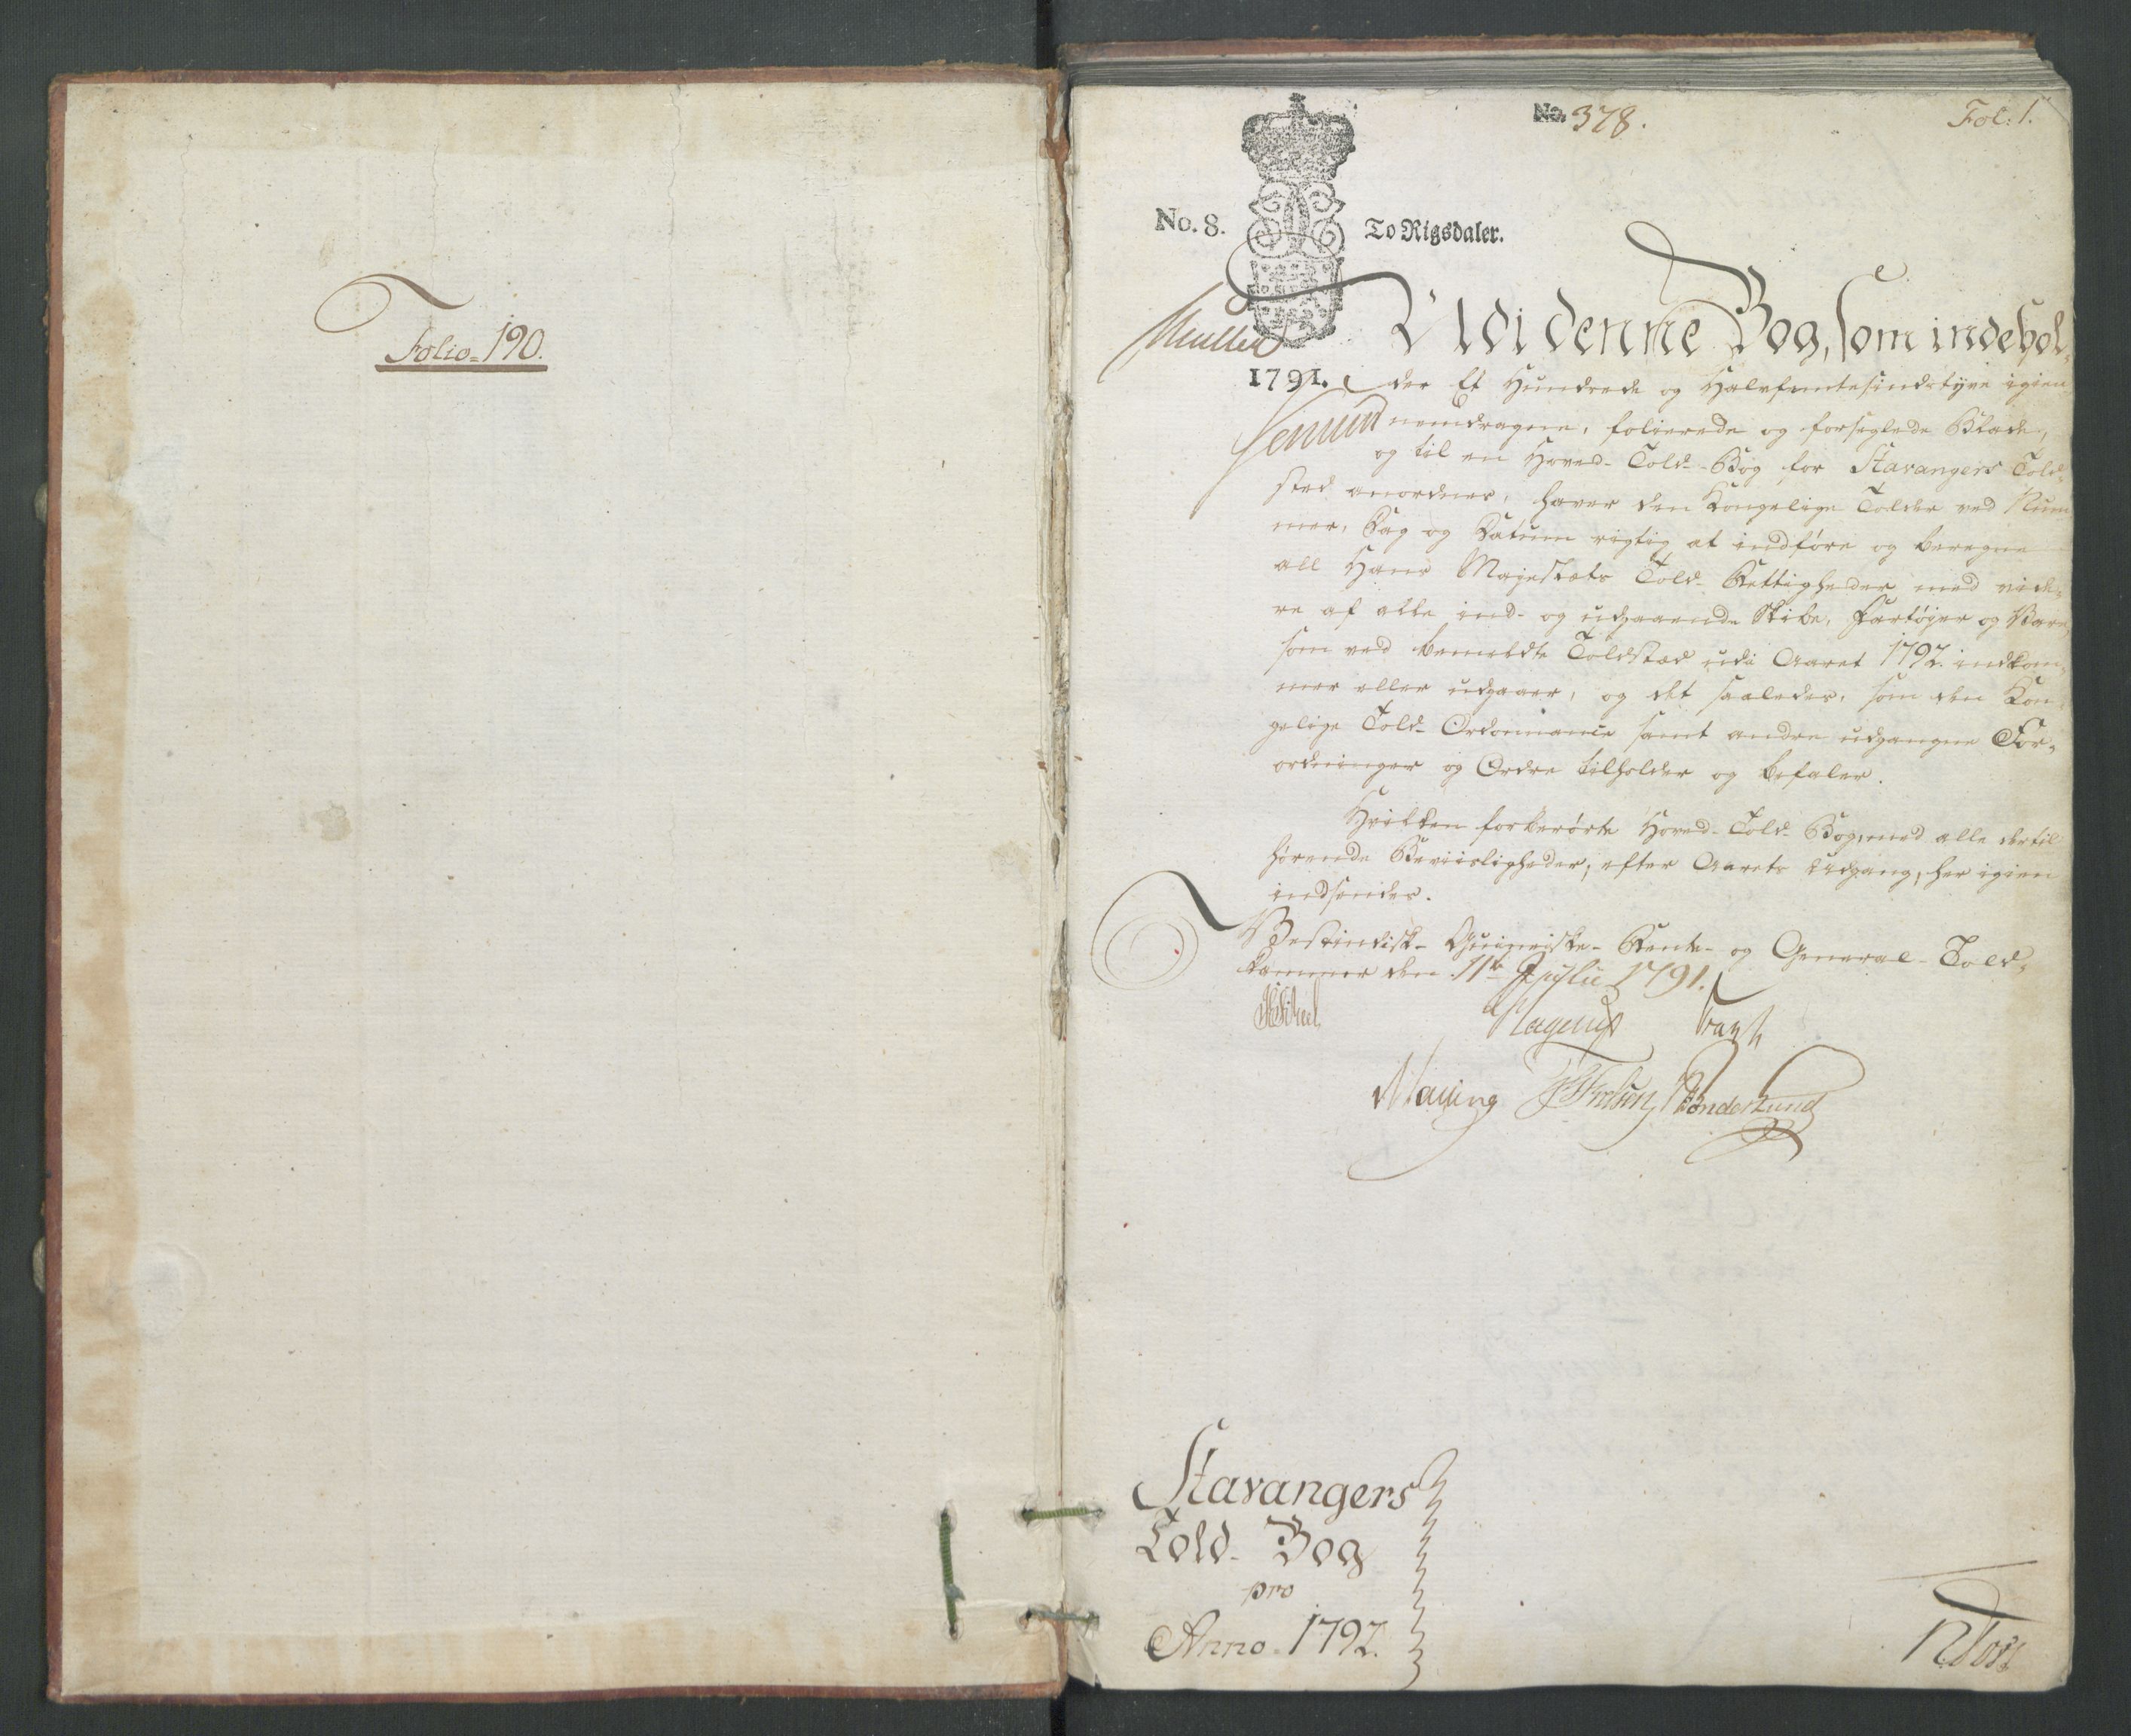 Folio 190.
No. 378.
Fol: 1.
No. 8.
To Rigsdaler.
Udi denne Bog, som indehol-
Müller
1791.
der Et Hundrede og Halvfemtesindstÿve igien
nemdragne, folierede og forseglede Blade,
og til en Hoved-Told-Bog for Stavangers Told-
sted anordnes, haver den Kongelige Tolder ved Num
mer, Dag og Datum rigtig at indføre og beregne
all Hans Majestæts Told-Rettigheder med vide-
re af alle ind- og udgaaende Skibe, Fartøjer og Vare,
som ved bemeldte Toldsted udi Aaret 1792. indkom-
mer eller udgaaer, og det saaledes, som den Kon-
gelige Told-Ordonnance samt andre udgangne For-
ordninger og Ordre tilholder og befaler.
Hvilken forberørte Hoved-Told-Bog, med alle dertil
hørende Beviisligheder, efter Aarets Udgang, her igien
indsendes.
Vestindisk-Guineiske-Rente- og General-Told-
kammer den 11te Julii 1791.
Malling
Stavangers
Told-Bog
pro
Anno 1792.